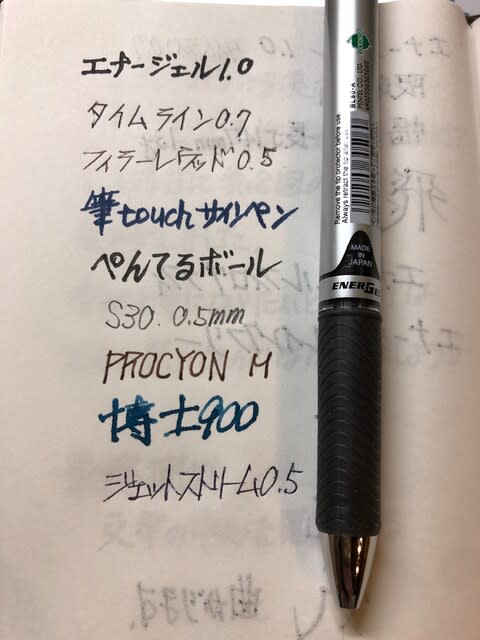 エナージェル1.0
タイムライン0.7
0.5
筆touchサインペン
ぺんてるボール
S30. 0.5mm
PROCYON M
博士900
ジェットストリーム0.5
PENTEL CO., LTD.
BL80-A
Remove the tip protector before use.
Always retract the tip after use.
MADE IN
JAPAN
ENERGEL